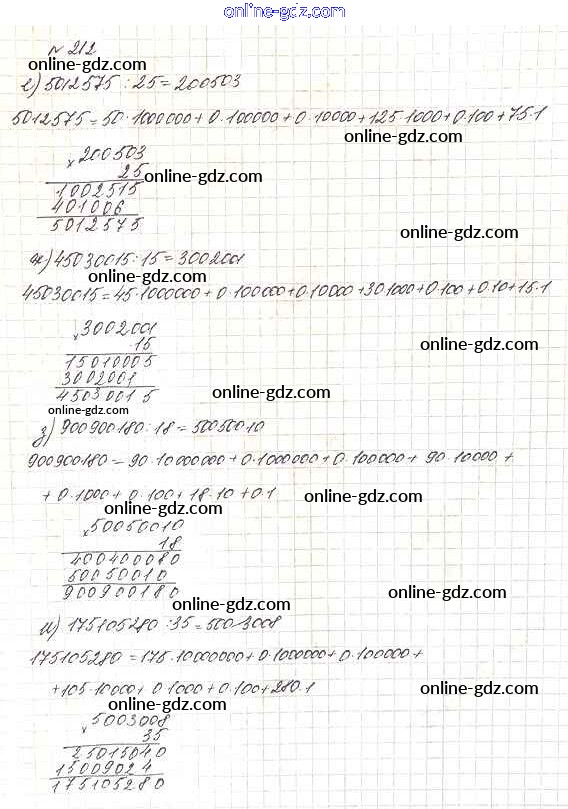 online-gdz.com
№ 212
е) 5012575 : 25 = 200503
5012575 = 50·1000000 + 0·100000 + 0·10000 + 125·1000 + 0·100 + 75·1
online-gdz.com
× 200503
25
online-gdz.com
1002515
401006
5012575
online-gdz.com
ж) 45030015 : 15 = 3002001
online-gdz.com
45030015 = 45·1000000 + 0·100000 + 0·10000 + 30·1000 + 0·100 + 0·10 + 15·1
× 3002001
15
online-gdz.com
15010005
3002001
45030015
online-gdz.com
online-gdz.com
з) 900900180 : 18 = 50050010
900900180 = 90·10000000 + 0·1000000 + 0·100000 + 90·10000 +
+ 0·1000 + 0·100 + 18·10 + 0·1
online-gdz.com
online-gdz.com
× 50050010
18
400400080
50050010
900900180
online-gdz.com
online-gdz.com
и) 175105280 : 35 = 5003008
175105280 = 175·10000000 + 0·1000000 + 0·100000 +
+ 105·10000 + 0·1000 + 0·100 + 280·1
online-gdz.com
online-gdz.com
× 5003008
35
25015040
15009024
175105280